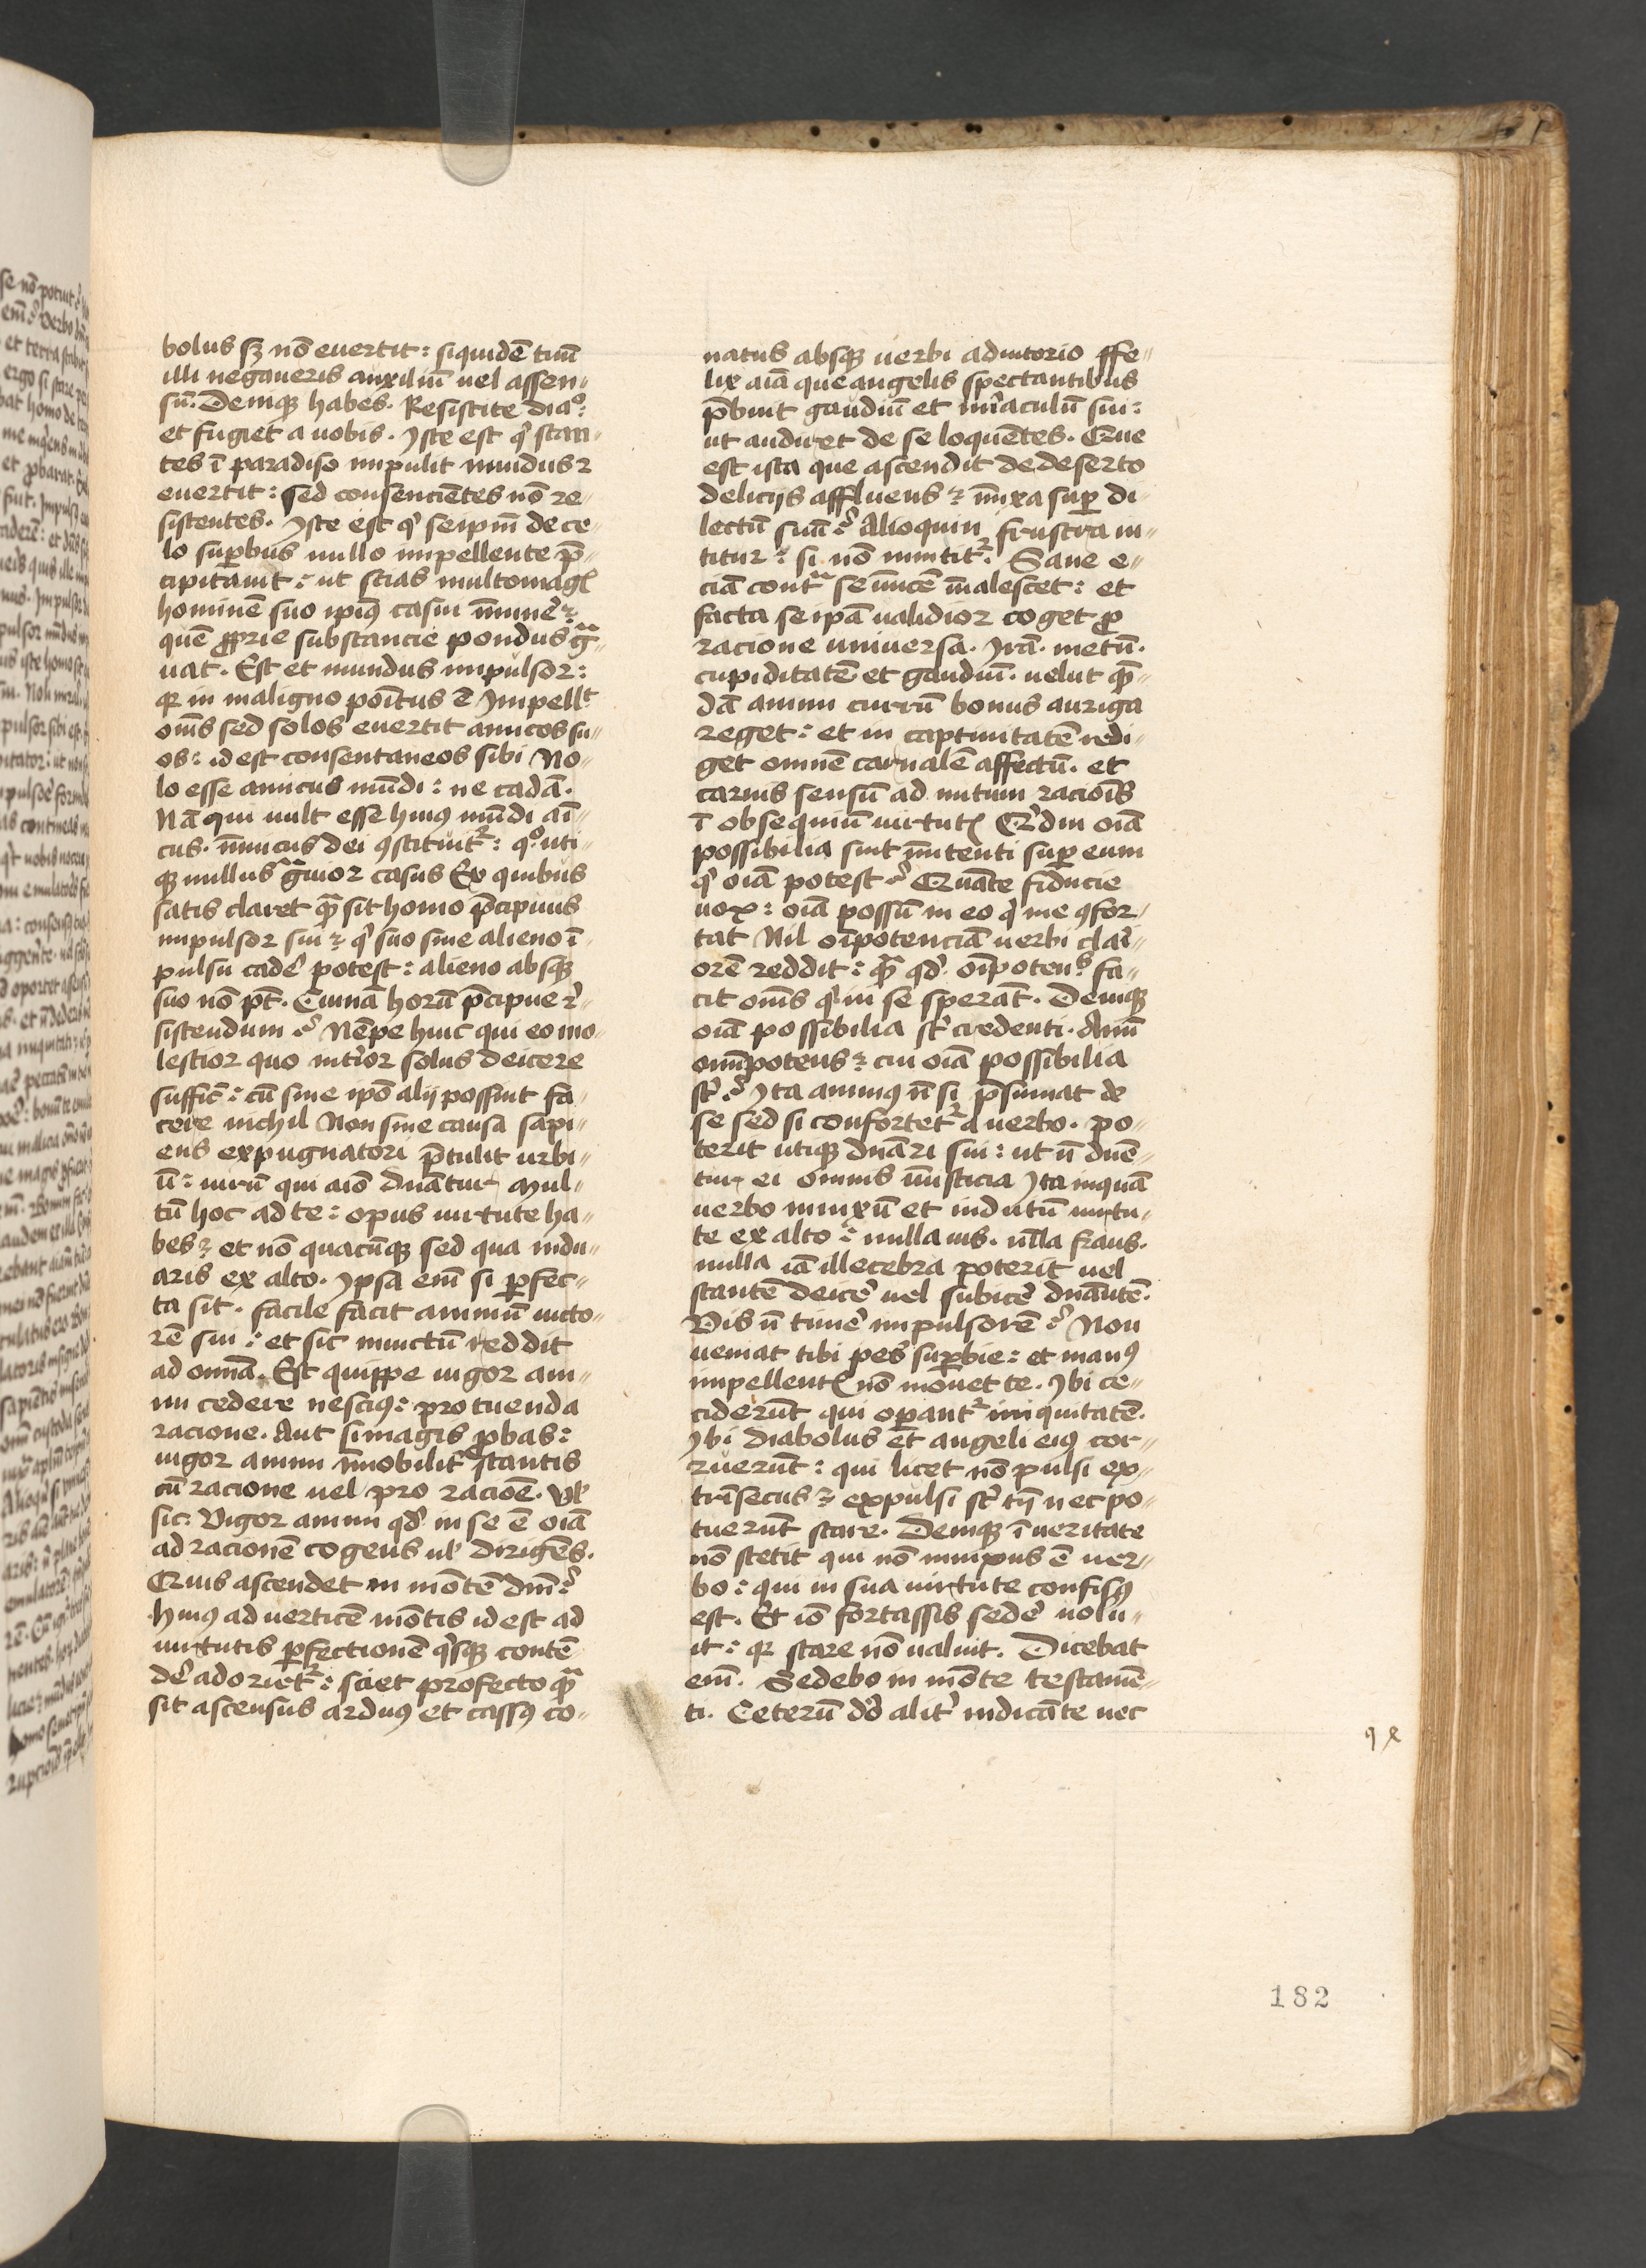 bolus sꝫ nō euertit: siquidē tuū
illi negaueris auxiliū uel assen-
sū. Deniqꝫ habes. Resistite diaº:
et fugiet a uobis. Iste est qͥ stan-
tes ī paradiso inpulit inuidus ⁊
euertit: sed consencientes nō re-
sistentes. Iste est qͥ seipm̄ de ce-
lo suꝑbus nullo inpellente p̄-
cipitauit: ut scias multomagꝭ
hominē suo ipiꝰ casui īminē⁊
quē ꝓprie substancie pondus gͣ-
uat. Est et mundus inpulsor:
qꝛ in maligno poītus ē Impellt
om̄s sed solos euertit amicos su-
os: id est consentaneos sibi No-
lo esse amicus mūdi: ne cadā.
Nā qui uult esse huiꝰ mūdi ai-
cus. īimicus dei ꝯstituit᷑: qº uti-
qꝫ nullus gͣuior casus Ex quibus
satis claret qͣ sit homo p̄cipuus
inpulsor sui ⁊ qͥ suo sine alieno ī-
pulsu cadē potest: alieno absqꝫ
suo nō pt̄. Cuinā horū p̄cipue r̄-
sistendum? Nēpe huic qui eo mo-
lestior quo int̄ior solus deicere
suffic̄: cū sine ipō alij possint fa-
cere nichil Non sine causa sapi-
ens expugnatori p̄tulit urbi-
ū: uirū qui aiō dnātur Mul-
tū hoc ad te: opus uirtute ha-
bes ⁊ et nō quacūqꝫ sed qua indu-
aris ex alto. Ipsa em̄ si ꝑfec-
ta sit. facile facit animū uicto-
rē sui: et sic inuictū reddit
ad omnā. Est quippe uigor ani-
mi cedere nesciꝰ: pro tuenda
racione. Aut si magis ꝓbas:
uigor animi īmobilit̄ stantis
cū racione uel pro racioē. Vl̵
sic: Vigor animi qd̄ in se ē oīa
ad racionē cogens ul̵ dirigens.
Quis ascendet in mōtē dm̄?
Huiꝰ ad uerticē mōtis id est ad
uirtutis ꝑfectionē qͥsqꝫ contē-
dē adoriet᷑: sciet profecto qͣ
sit ascensus arduꝰ et cassꝰ co-
natus absqꝫ uerbi adiutorio ffe-
lix aīā que angelis spectantibus
p̄buit gaudiū et miraculū sui:
ut audiret de se loquētes. Que
est ista que ascendit de deserto
delicijs affluens ⁊ īnixa suꝑ di-
lectū suū? Alioquin frustra ni-
titur: si nō inititᷣ. Sane e-
ciā contͣ se īuicē īualescet: et
facta seipā ualidior coget ꝓ
racione uniuersa. Irā. metū.
cupiditatē et gaudiū. uelut qͣ-
dā animi currū bonus auriga
reget: et in captiuitatē redi-
get omnē carnalē affectū. et
carnis sensū ad nutum racioīs
ī obsequiū uirtutꝭ Qͥdni oīa
possibilia sint īnitenti suꝑ eum
qͥ oīa potest? Quāte fiducie
uox: oīa possū in eo qͥ me ꝯfor-
tat Nil oīpotenciā uerbi clari-
orē reddit: qͣ qd̄ oīpotens fa-
cit om̄s qͥ in se sperāt. Deniqꝫ
oīa possibilia st̄ credenti. Annū
omīpotens ⁊ cui oīa possibilia
st̄? Ita animꝰ n̄ si p̄sumat de
se sed si confortet᷑ a uerbo. po-
terit utiqꝫ dnāri sui: ut n̄ dnē-
tur ei omnis īiusticia Ita inquā
uerbo innixū et indutū uirtu-
te ex alto: nulla uis. nlla fraus.
nulla iā illecebra poterit uel
stantē deicē uel subicē dnātē.
Vis n̄ timē inpulsorē? Non
ueniat tibi pes suꝑbie: et manꝰ
inpellentꝭ nō mouet te. Ibi ce-
ciderūt qui oꝑant᷑ iniquitatē.
Ibi diabolus et angeli eiꝰ cor-
ruerūt: qui licet nō pulsi ex-
trīsecus ⁊ expulsi st̄ tn̄ nec po-
tuerūt stare. Deniqꝫ ī ueritate
nō stetit qui nō innixus ē uer-
bo: qui in sua uirtute confisꝰ
est. Et iō fortassis sedē uolu-
it: qꝛ stare nō ualuit. Dicebat
em̄. Sedebo in mōte testamē-
ti. Ceterū dō alit̄ iudicāte nec
182